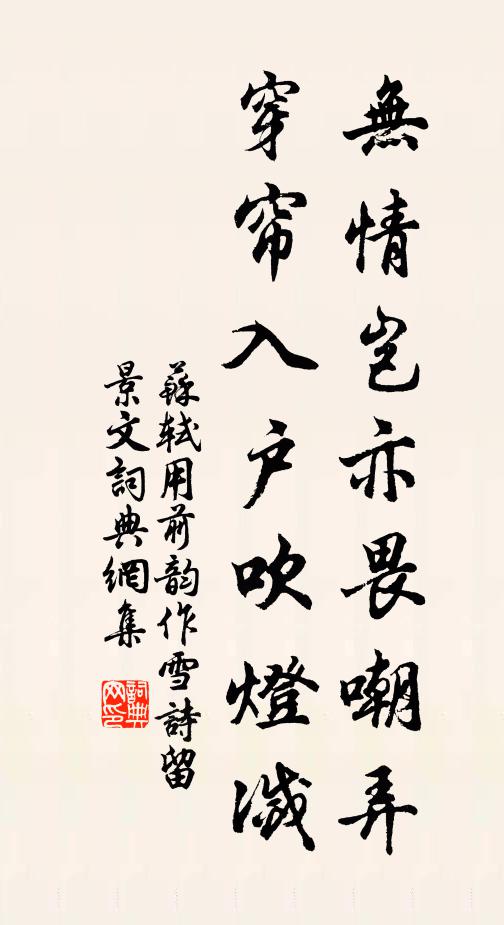 無情豈亦畏嘲弄
穿帘入戶吹燈滅
蘇軾用前韵作雪詩留
景文詞典網集
詞典网印